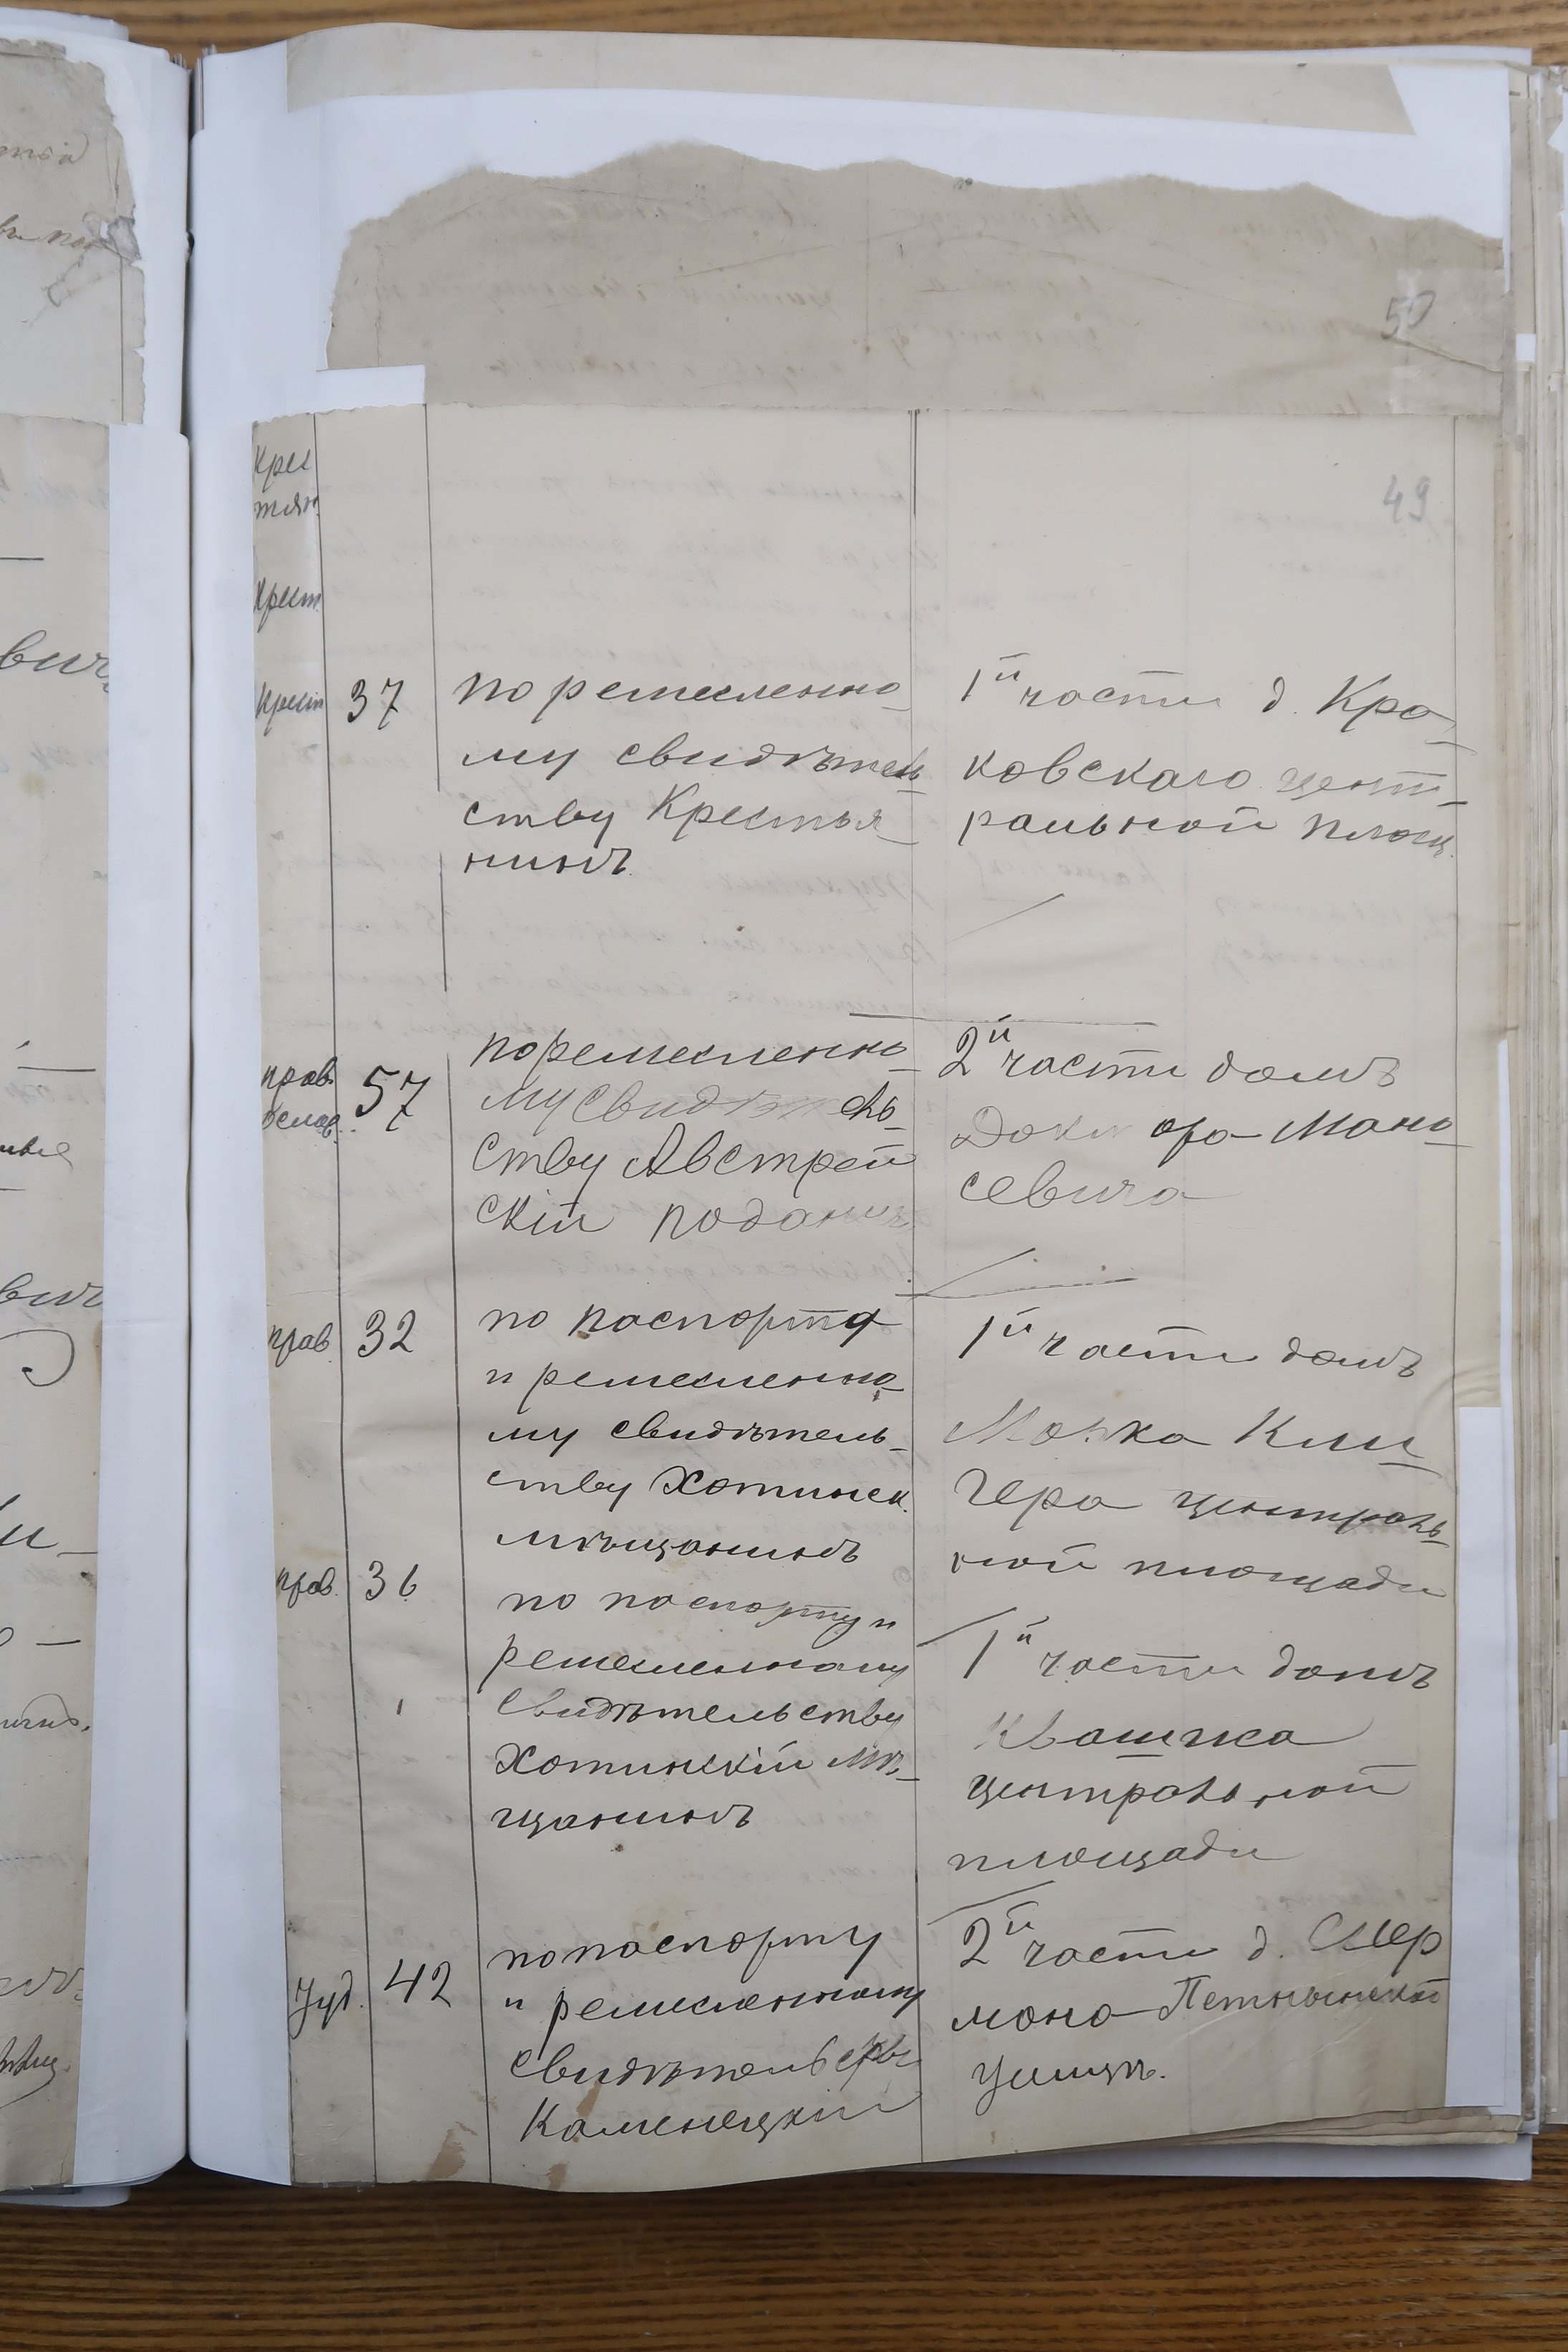 50
49
Хрес
тян.
Хрест
Крест 37 по ремесленно-
му свидѣтель-
ству Крестья-
нинъ.
1й части д. Кра-
ковскаго цент-
ральной площ.
право
слав. 57 по ремесленно-
му свидѣтель-
ству Австрій
скій подан
2й части домъ
Доктора Мано-
севича
прав. 32 по паспорту
и ремесленно-
му свидѣтель-
ству Хотинск.
мѣщанинъ
1й части домъ
Мошка Кли-
гера централь-
ной площади
прав. 36 по паспорту и
ремесленному
свидѣтельству
Хотинскій мѣ-
щанинъ
1й части домъ
Квашика
центральной
площади
Іуд. 42 по паспорту
и ремесленному
свидѣтельству
Каменецкій
2й части д.
мана
улицѣ.